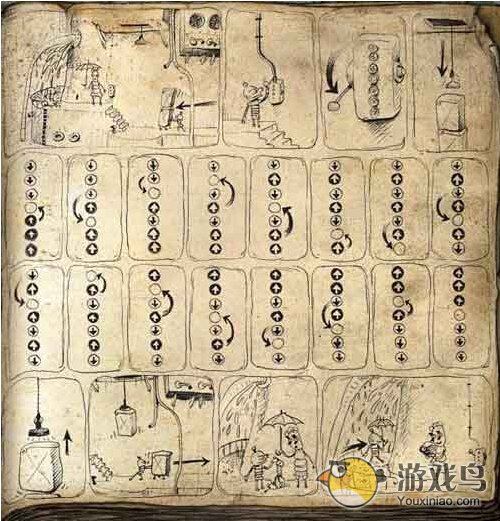 游戏鸟
Youxiniao.com